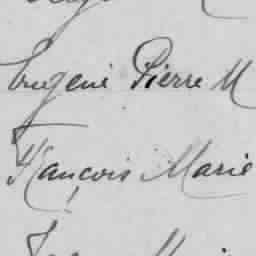 Eugène Pierre M
François Marie